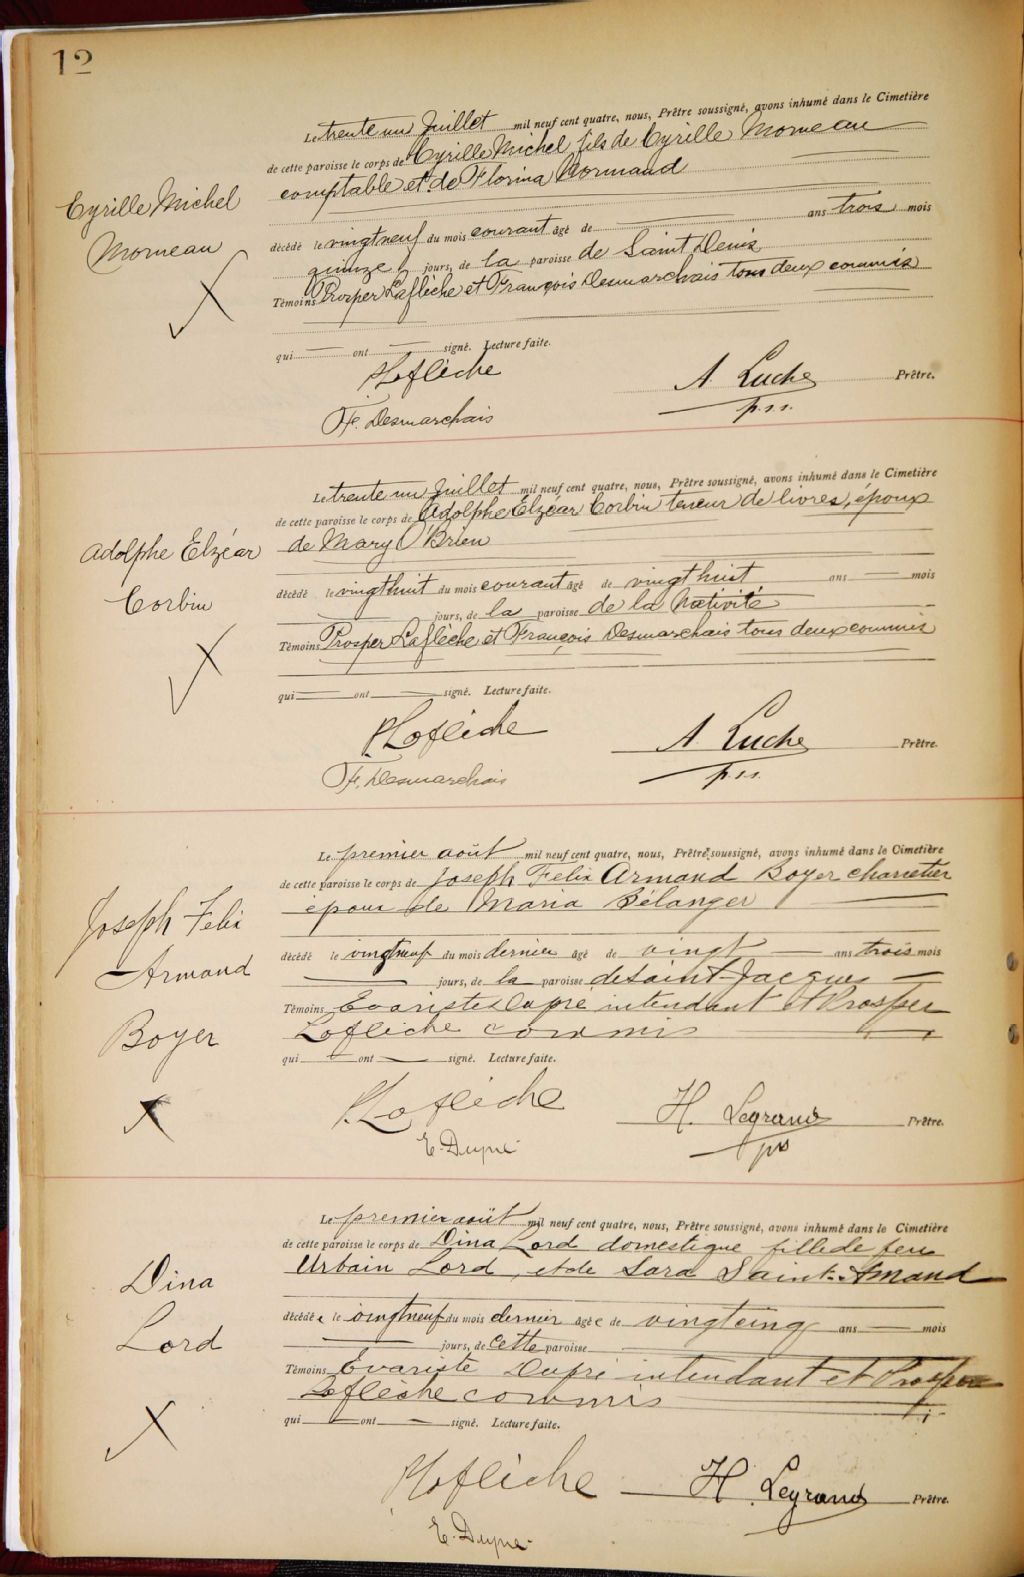 12
Le trente un Juillet mil neuf cent quatre, nous, Prêtre soussigné, avons inhumé dans le Cimetière
de cette paroisse le corps de Cyrille Michel fils de Cyrille Morneau
comptable et de Florina Normand
Cyrille Michel
Morneau
décédé le vingtneuf du mois courant âgé de ans trois mois
quinze jours, de la paroisse de Saint Denis
Témoins Prosper Laflèche et François Desmarchais tous deux commis
qui ont signé. Lecture faite.
P. Laflèche
A. Luche Prêtre.
p.s.s.
F. Desmarchais
Le trente un Juillet mil neuf cent quatre, nous, Prêtre soussigné, avons inhumé dans le Cimetière
de cette paroisse le corps de Adolphe Elzéar Corbin teneur de livres, époux
de Mary Brien
Adolphe Elzéar
Corbin
décédé le vingthuit du mois courant âgé de vingt huit ans mois
jours, de la paroisse de la Nativité
Témoins Prosper Laflèche et François Desmarchais tous deux commis
qui ont signé. Lecture faite.
P. Laflèche
A. Luche Prêtre.
p.s.s.
F. Desmarchais
Le premier août mil neuf cent quatre, nous, Prêtre soussigné, avons inhumé dans le Cimetière
de cette paroisse le corps de Joseph Felix Armand Boyer charretier
époux de Maria Bélanger
Joseph Felix
Armand
Boyer
décédé le vingtneuf du mois dernier âgé de vingt ans trois mois
jours, de la paroisse de Saint-Jacques
Témoins Evariste Dupré intendant et Prosper
Laflèche commis
qui ont signé. Lecture faite.
P. Laflèche
H. Legrand Prêtre.
pss
E. Dupré
Le premier août mil neuf cent quatre, nous, Prêtre soussigné, avons inhumé dans le Cimetière
de cette paroisse le corps de Dina Lord domestique fille de feu
Urbain Lord, et de Sara Saint-Amand
Dina
Lord
décédée le vingtneuf du mois dernier âgée de vingtcinq ans mois
jours, de cette paroisse
Témoins Evariste Dupré intendant et Prosper
Laflèche commis
qui ont signé. Lecture faite.
P. Laflèche
H. Legrand Prêtre.
E. Dupré